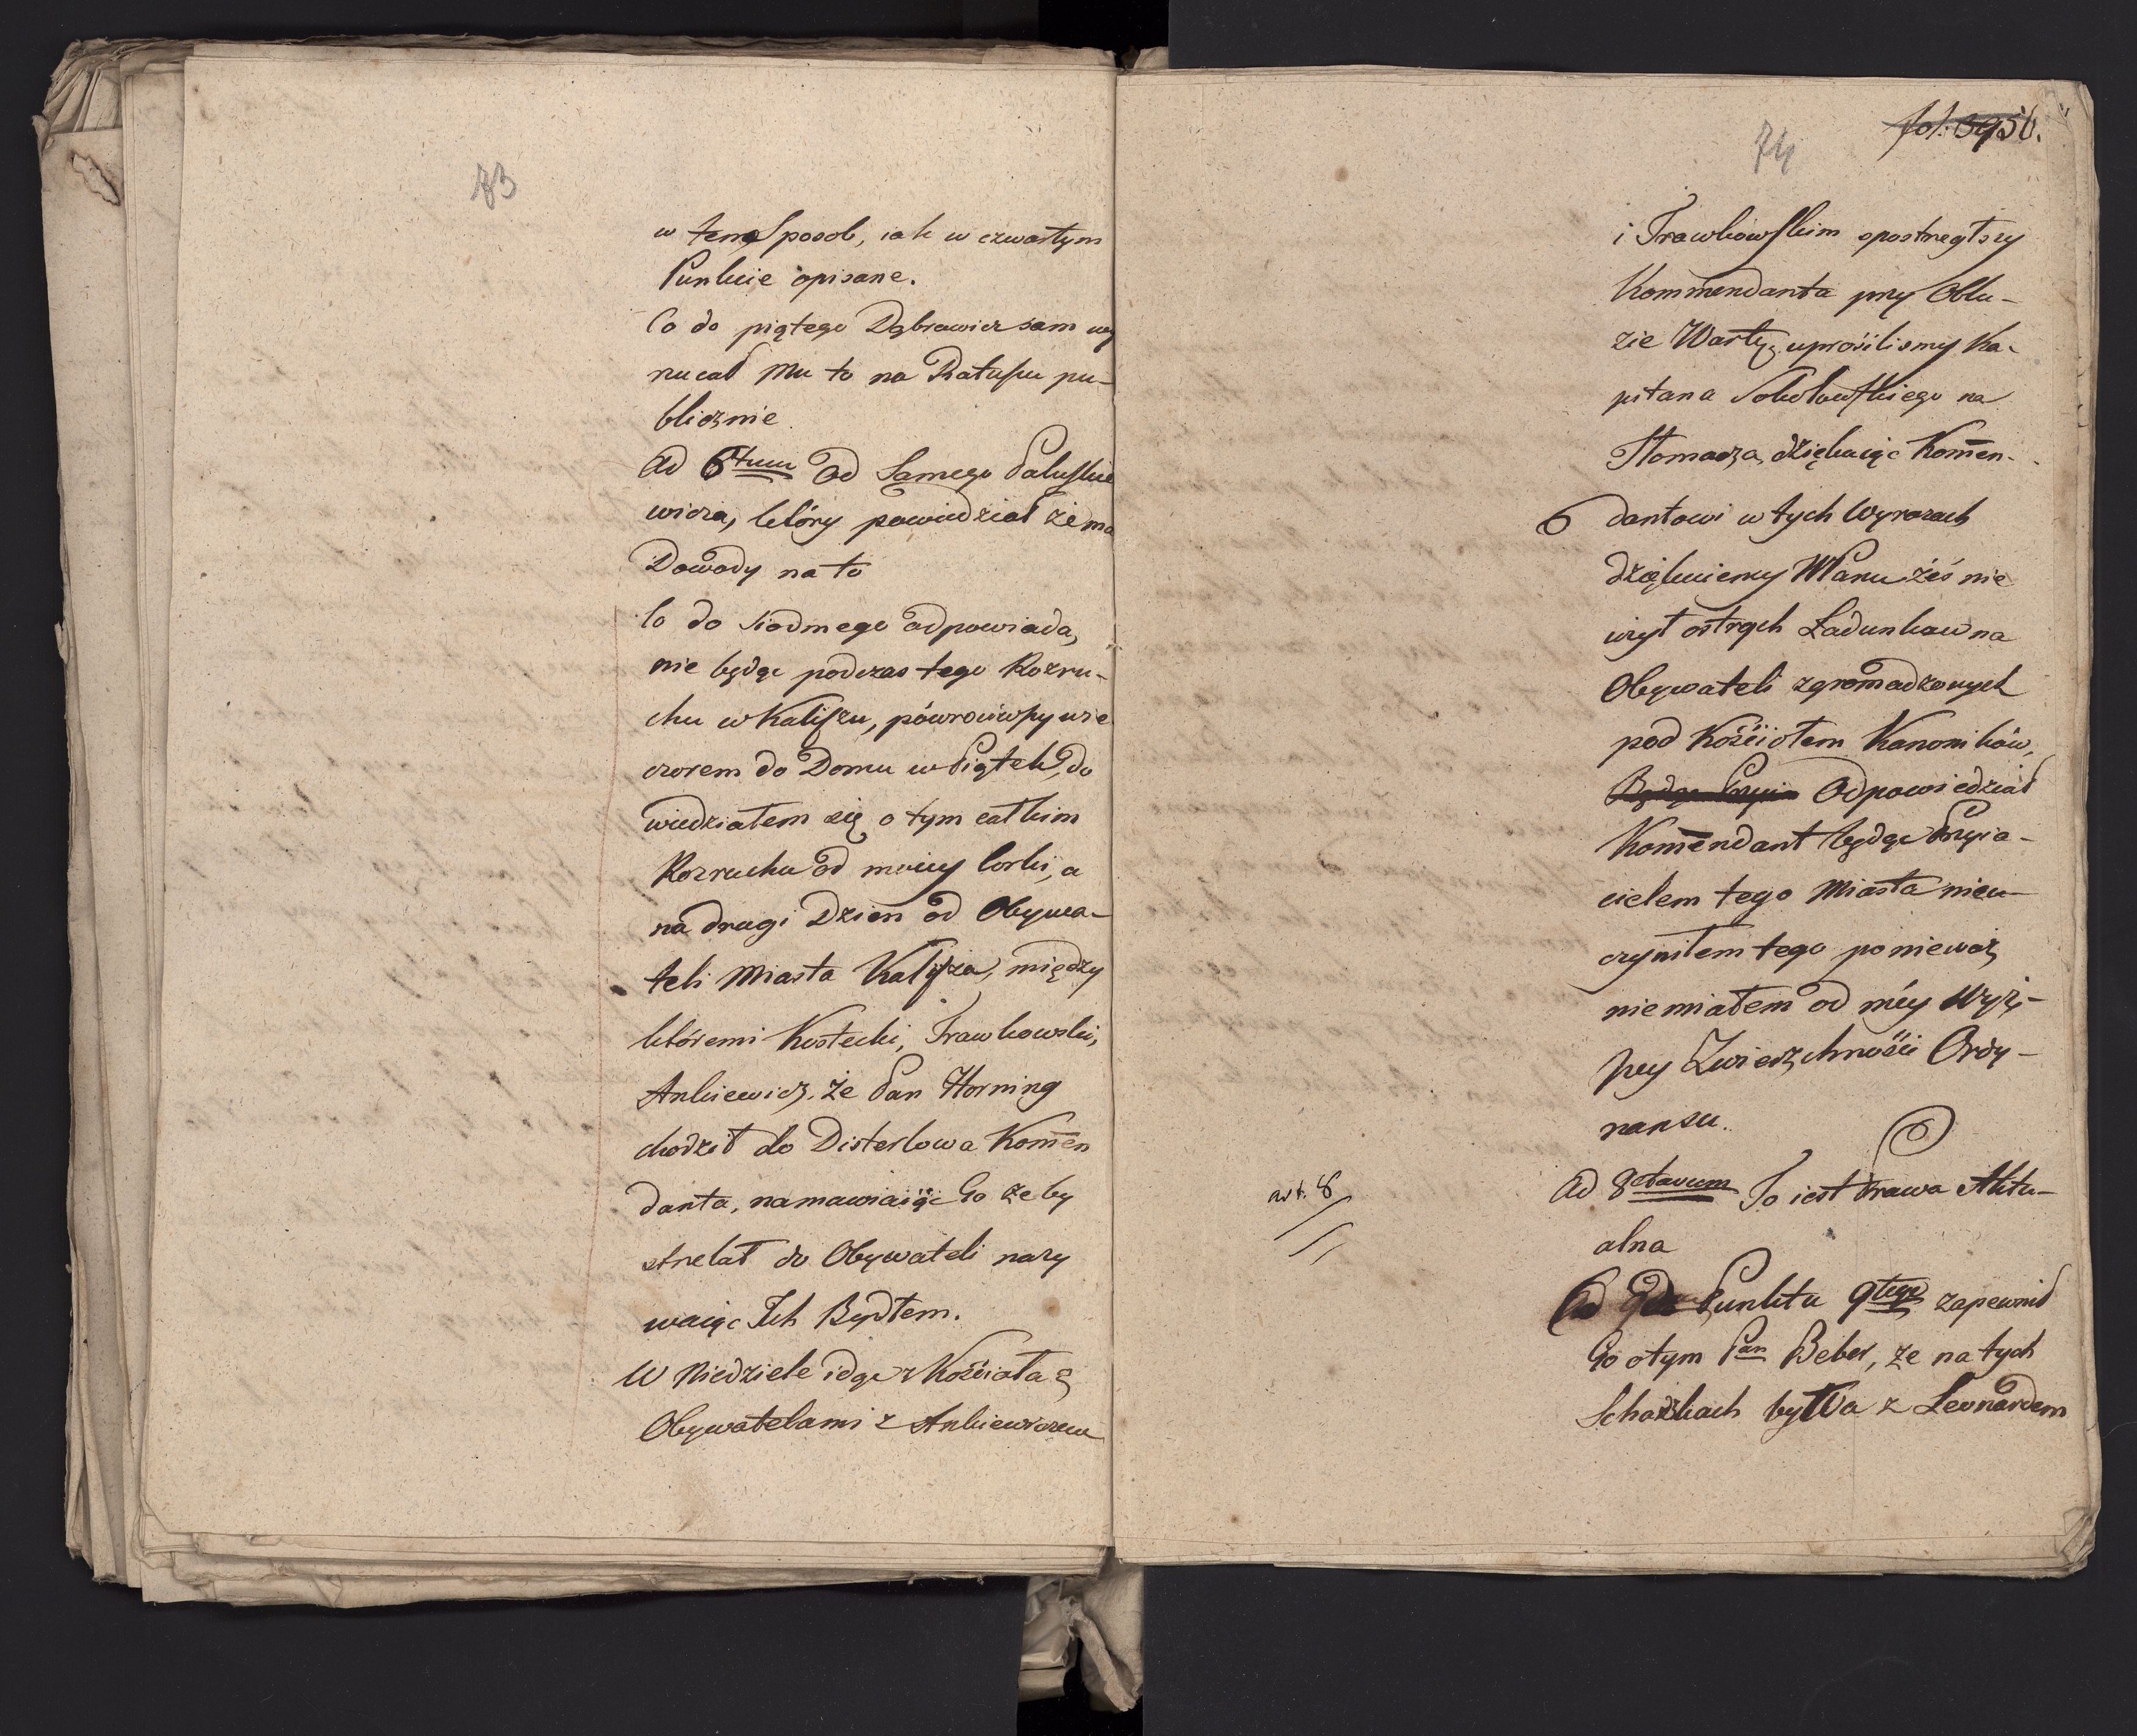 73
w tem Sposob, iak w czwartym
Punkcie opisane.
Co do piątego Dąbrowicz sam wy
rzucał Mu to na Ratuszu pu-
blicznie
Ad 6tum Od Samego Paluszkie
wicza, który powiedział że ma
Dowody na to
Co do siodmego odpowiada,
nie będąc podczas tego Rozru-
chu w Kaliszu, pówrociwszy wie
czorem do Domu w Piątek, do
wiedziałem się o tym całkim
Rozruchu od moiey Corki, a
na drugi Dzien od Obywa-
teli Miasta Kalisza, między
któremi Kostecki, Trawkowski,
Ankiewicz, że Pan Horning
chodził do Disterlowa Kom̄en
danta, namawiaiąc Go że by
strelał do Obywateli nazy
waiąc Ich Bydłem.
W Niedziele idąc z Kościoła z
Obywatelami z Ankiewiczem
fol: 3956.
74
i Trawkowskim spostregłszy
Kommendanta przy Oblu-
zie Warty, uprosilismy Ka-
pitana Sokołowskiego na
Tłomacza, dziękuiąc Kom̄en-
6 dantowi w tych Wyrazach
dziękuiemy WPanu żeś nie
użył ostrych Ładunkow na
Obywateli zgromadzonych
pod Kościołem Kanoników,
Będąc Przyia Odpowiedział
Kom̄endant będąc Przyia-
cielem tego Miasta nieu-
czyniłem tego ponieważ
niemiałem od méy Wyż-
szey Zwierzchności Ordy-
nansu.
art. 8
Ad 8ctavum To iest Prawa Aktu-
alna
Ad 9 Punktu 9tego zapewnił
Go o tym Pan Beber, że na tych
Schadzkach bywa z Leonardem